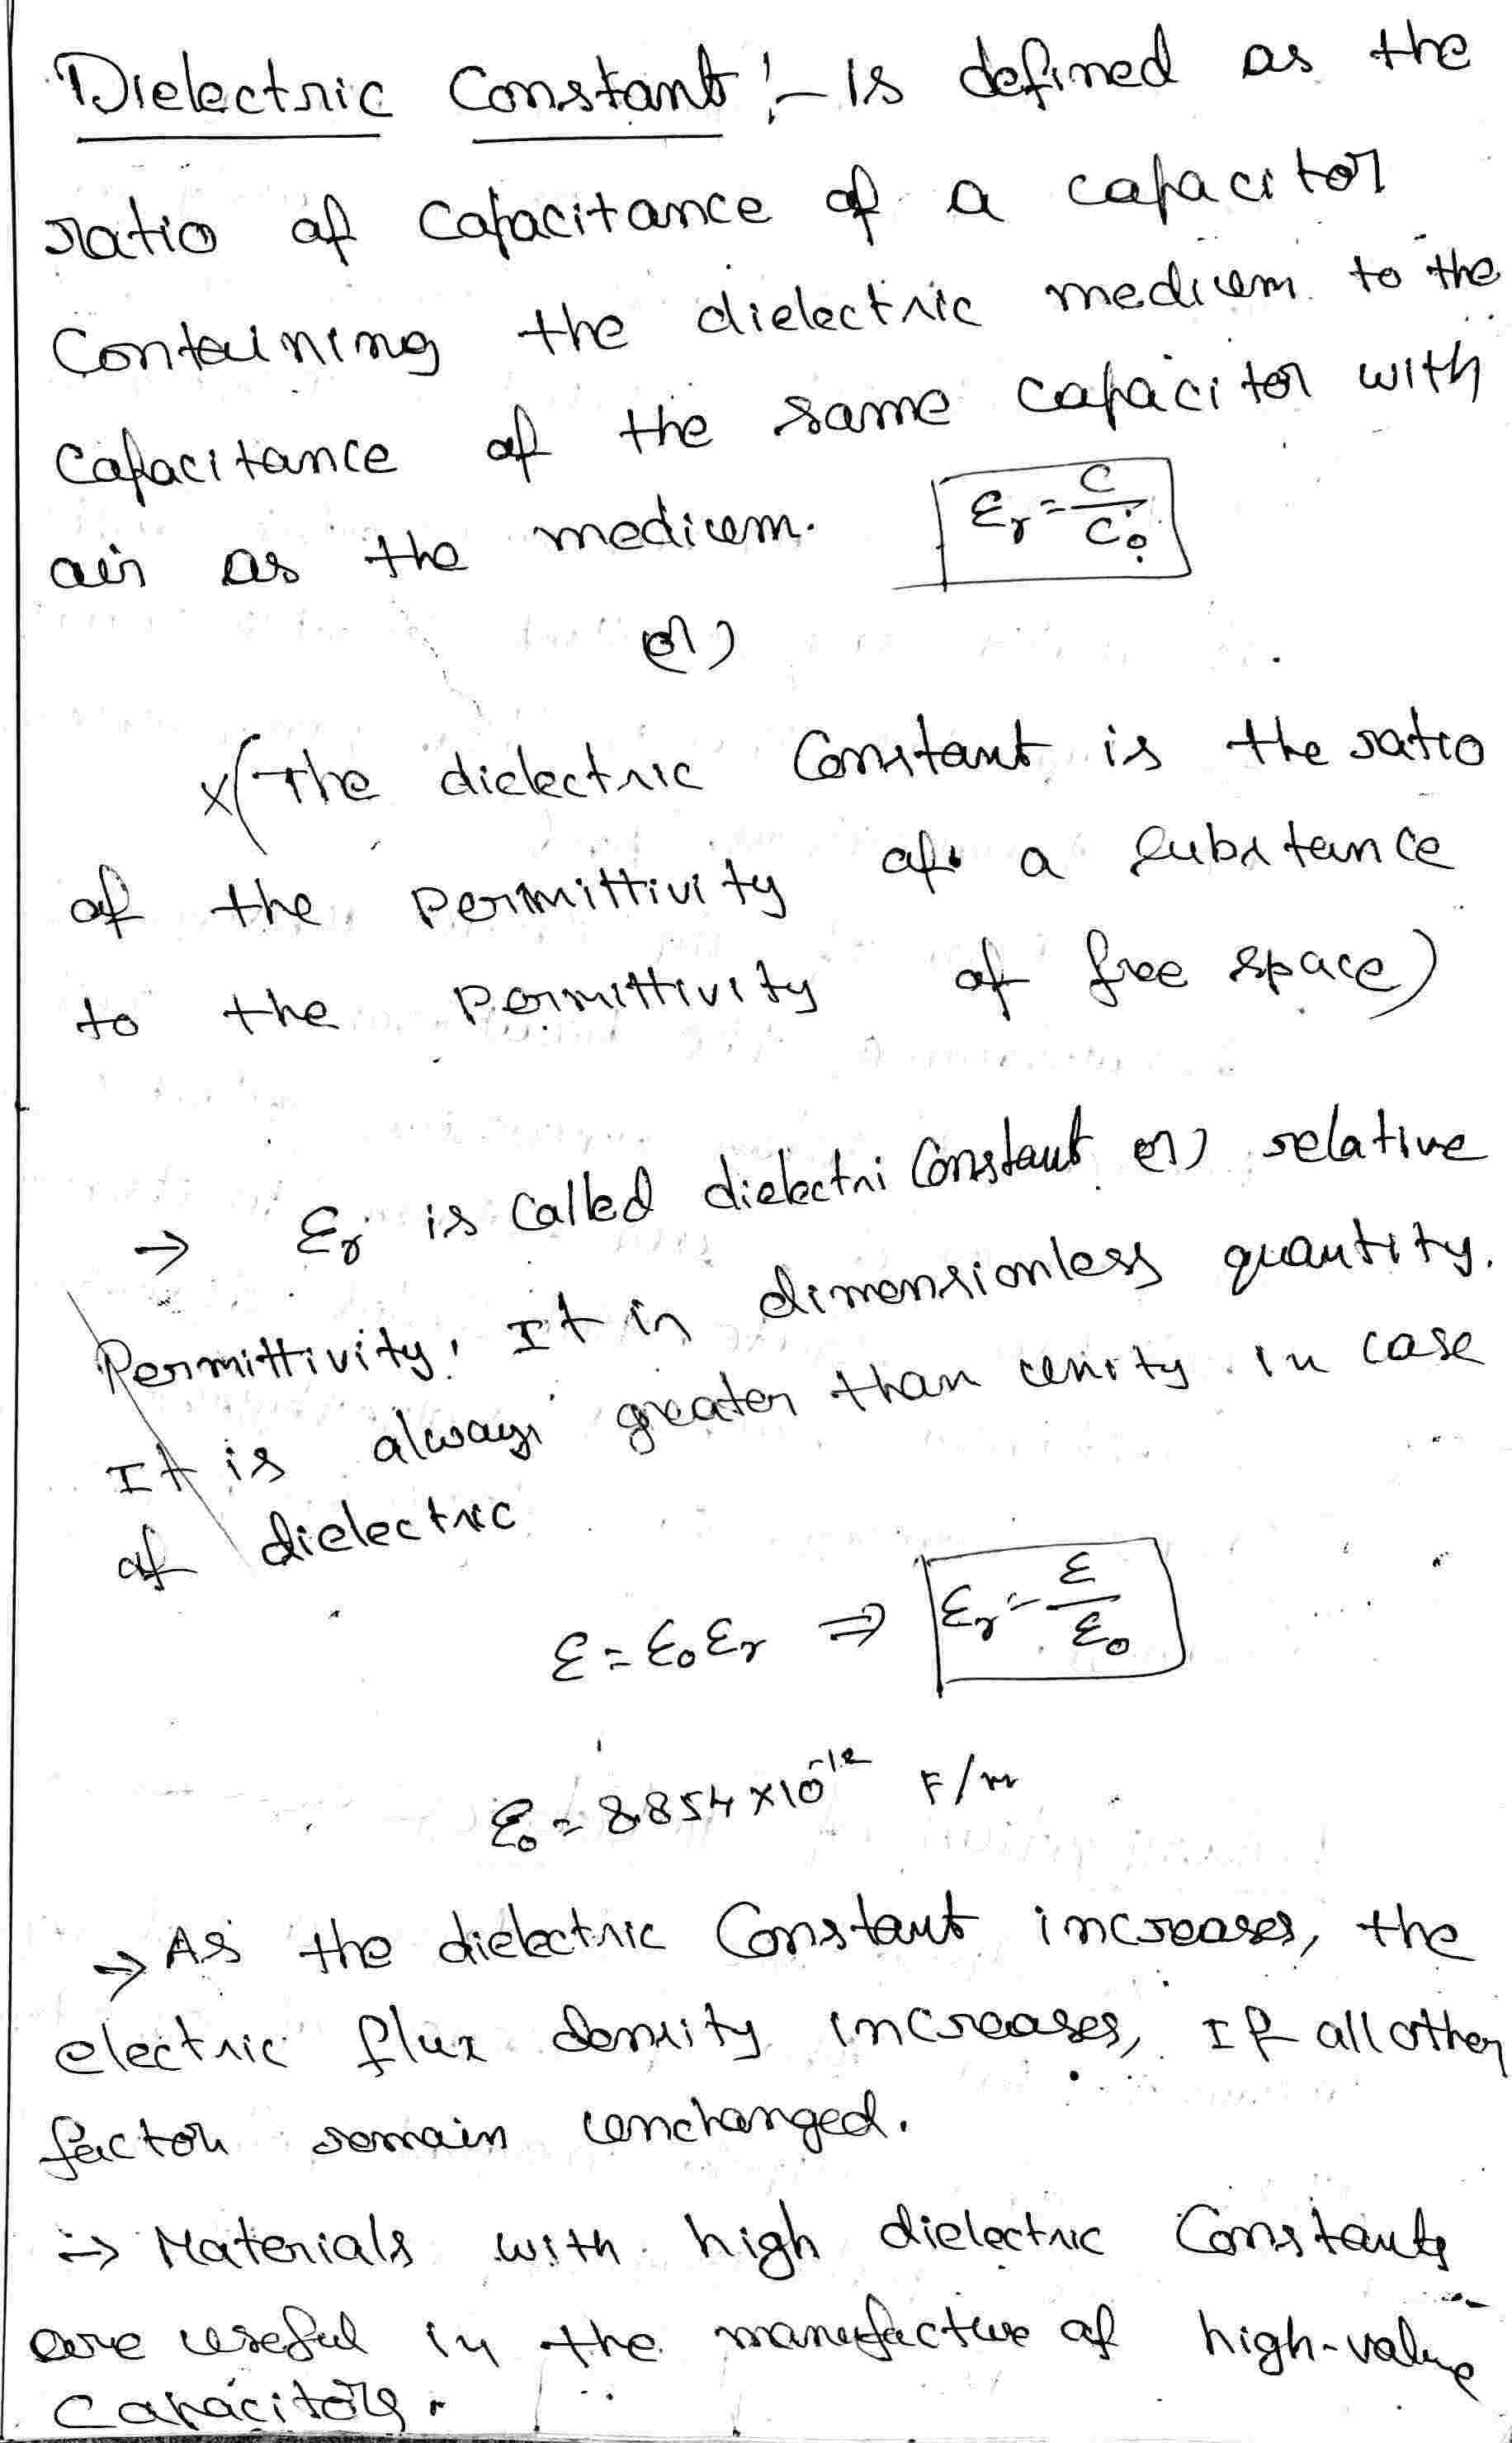 Dielectric Constant :- is defined as the
ratio of capacitance of a capacitor
Containing the dielectric medium to the
capacitance of the same capacitor with
air as the medium. εr = C/C₀
or)
x(The dielectric Constant is the ratio
of the permittivity of a substance
to the permittivity of free space)
→ εr is called dielectri Constant or) relative
Permittivity. It is dimensionless quantity.
It is always greater than unity in case
of dielectric
ε = ε₀ εr ⇒ εr = ε/ε₀
ε₀ = 8.854 × 10⁻¹² F/m
→ As the dielectric Constant increases, the
electric flux density increases, If all other
factors remain unchanged.
→ Materials with high dielectric Constants
are useful in the manufacture of high-value
Capacitors.